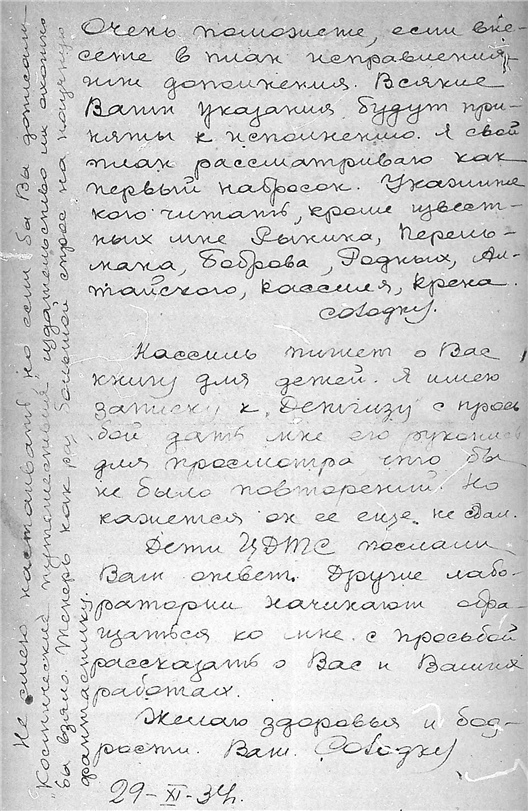 Очень поможете, если вне-
сете в план исправления
или дополнения. Всякие
Ваши указания будут при-
няты к исполнению. Я свой
план рассматриваю как
первый набросок. Укажите
кого читать, кроме извест-
ных мне Рынина, Перель-
мана, Боброва, Родных, Ал-
тайского, Кассиля, Крена.
Солодку.
Кассиль пишет о Вас
книгу для детей. Я имею
записку к "Детгизу" с прось
бой дать мне его рукопись
для просмотра, что бы
не было повторений. Но
кажется он ее еще не сдал.
Дети ЦДТС послали
Вам ответ. Другие лабо-
ратории начинают обра-
щаться ко мне с просьбой
рассказать о Вас и Ваших
работах.
Желаю здоровья и бод-
рости. Ваш Солодку
29-XI-34г.
Не смею настаивать, но если бы Вы дописали
"Космические путешествия", издательство их охотно
бы взяло. Теперь как раз большой спрос на научную
фантастику.